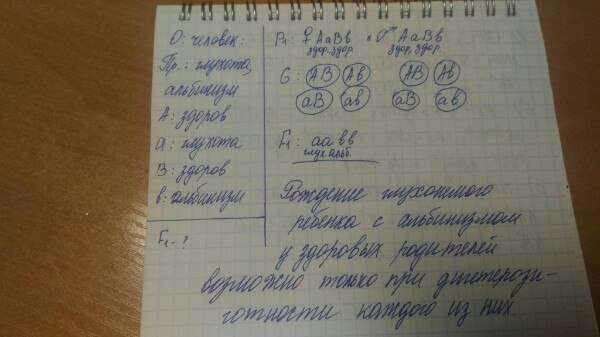 О: человек:
Пр.: глухота,
альбинизм
А: здоров
а: глухота
В: здоров
в: альбинизм
F₁ - ?
P₁: ♀ АаВв х ♂ АаВв
здор. здор. здор. здор.
G: АВ Ав АВ Ав
аВ ав аВ ав
F₁: аавв
глух. альб.
Рождение глухонемого
ребенка с альбинизмом
у здоровых родителей
возможно только при дигетерози-
готности каждого из них